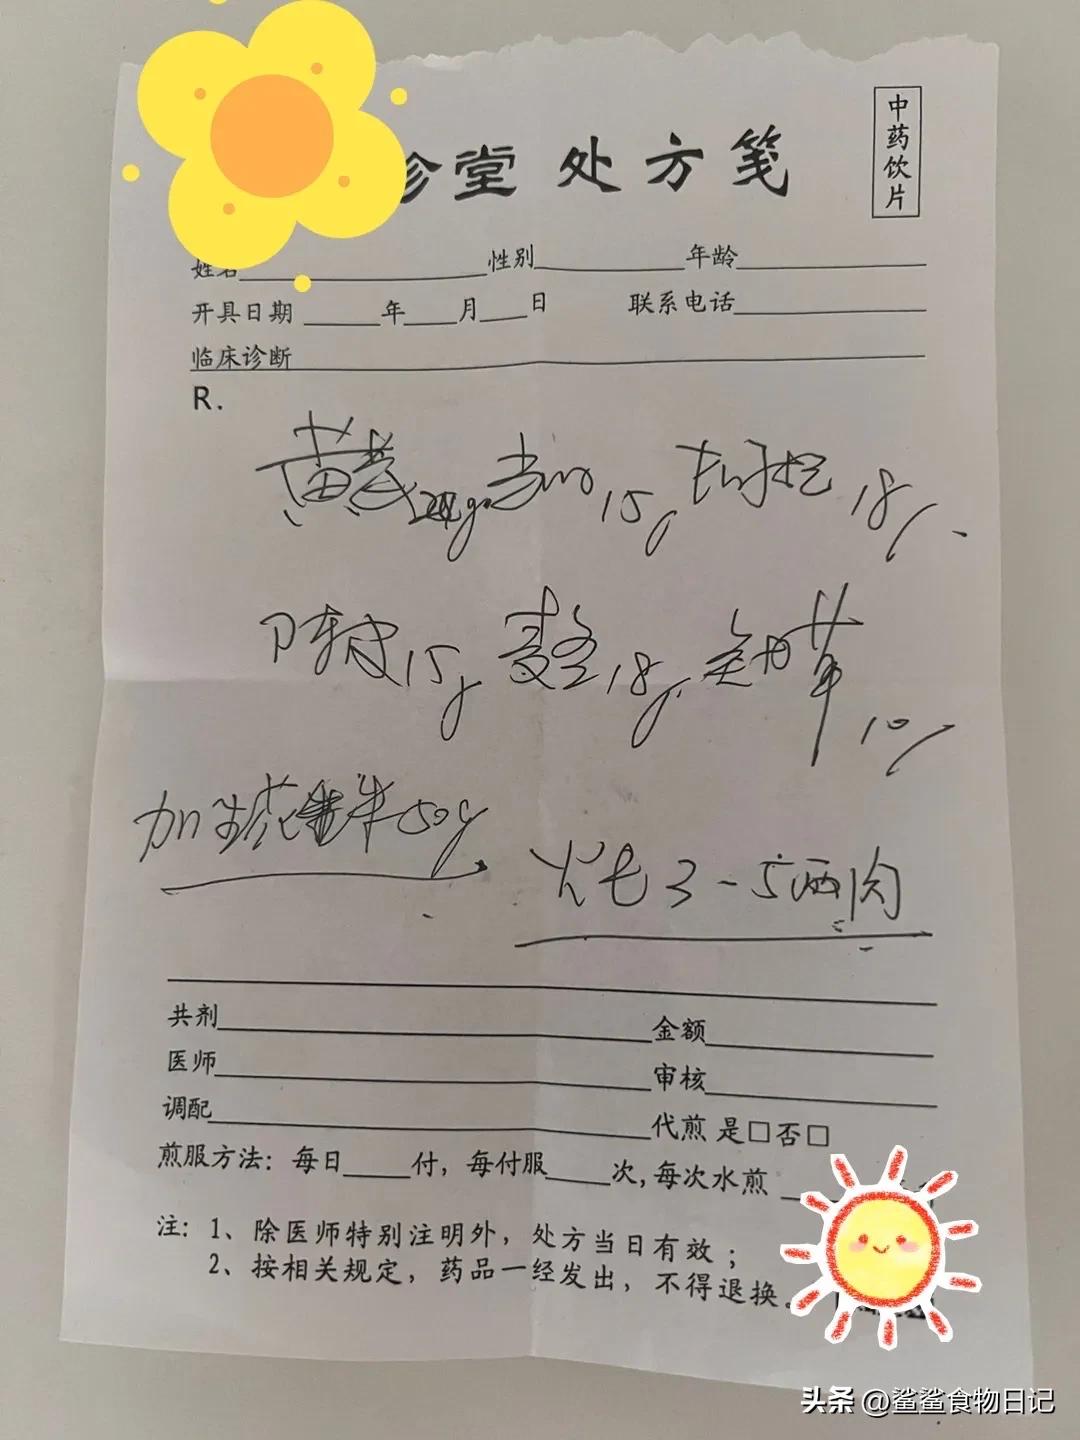 中药饮片
诊堂 处方笺
姓名 性别 年龄
开具日期 年 月 日 联系电话
临床诊断
R.
黄芪 当归15g 18g
陈皮15g 18g 10g
加生花生米50g
炖 3-5两肉
共剂 金额
医师 审核
调配 代煎 是□否□
煎服方法：每日 付，每付服 次，每次水煎
注：1、除医师特别注明外，处方当日有效；
2、按相关规定，药品一经发出，不得退换。
头条 @鲨鲨食物日记